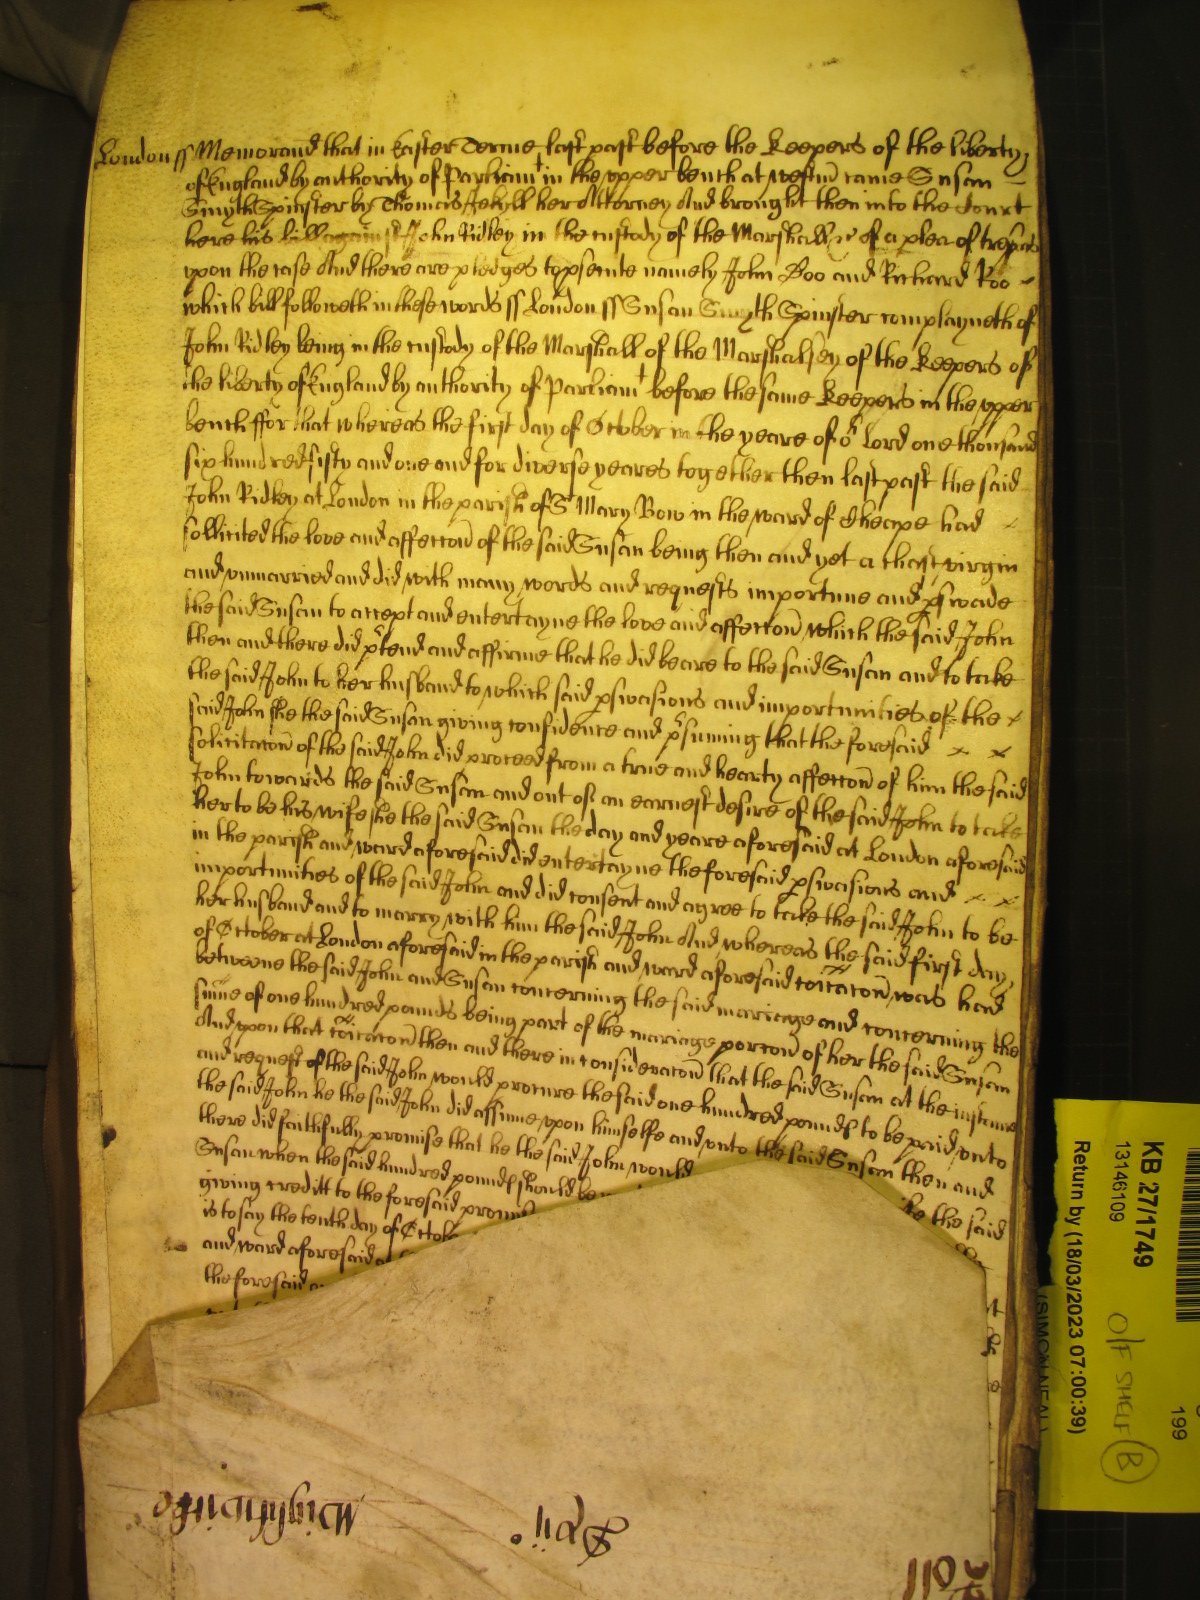 London ss Memorand that in Easter Terme last past before the Keepers of the liberty
of England by authority of Parliamt in the upper bench at westm came Susan
Smyth Spinster by Thomas Jekyll her Attorney And brought then into the Court
here his bill against John Ridley in the custody of the Marshall &c of a plea of trespas
upon the case And there are pledges to psecute namely John Doo and Richard Roo
which bill followeth in these words ss London ss Susan Smyth Spinster complayneth of
John Ridley being in the custody of the Marshall of the Marshalsey of the Keepers of
the liberty of England by authority of Parliamt before the same Keepers in the upper
bench ffor that whereas the first day of October in the yeare of or Lord one thousand
six hundred fifty and one and for diverse yeares together then last past the said
John Ridley at London in the parish of St Mary Bow in the ward of Cheape had
sollicited the love and affeccon of the said Susan being then and yet a chast virgin
and unmarried and did with many words and requests importune and pswade
the said Susan to accept and entertayne the love and affeccon which the said John
then and there did ptend and affirme that he did beare to the said Susan and to take
the said John to her husband to which said pswasions and importunities of the
said John she the said Susan giving confidence and psuming that the foresaid
solicitacon of the said John did proceed from a true and hearty affeccon of him the said
John towards the said Susan and out of an earnest desire of the said John to take
her to be his wife she the said Susan the day and yeare aforesaid at London aforesaid
in the parish and ward aforesaid did entertayne the foresaid pswasions and
importunities of the said John and did consent and agree to take the said John to be
her husband and to marry with him the said John And whereas the said first day
of October at London aforesaid in the parish and ward aforesaid coicacon was had
betweene the said John and Susan concerning the said mariage and concerning the
sume of one hundred pounds being part of the mariage porcon of her the said Susan
And upon that coicacon then and there in consideracon that the said Susan at the instance
and request of the said John would procure the said one hundred pounds to be paid unto
the said John he the said John did assume upon himselfe and unto the said Susan then and
there did faithfully promise that he the said John would the said
Susan when the said hundred pounds should be
giving creditt to the foresaid promise
is to say the tenth day of Octobe
and ward aforesaid
the foresaid
Wightwicke
KB 27/1749
13146109
Return by (18/03/2023 07:00:39)
(SIMON NEAL)
O/F SHELF B
199